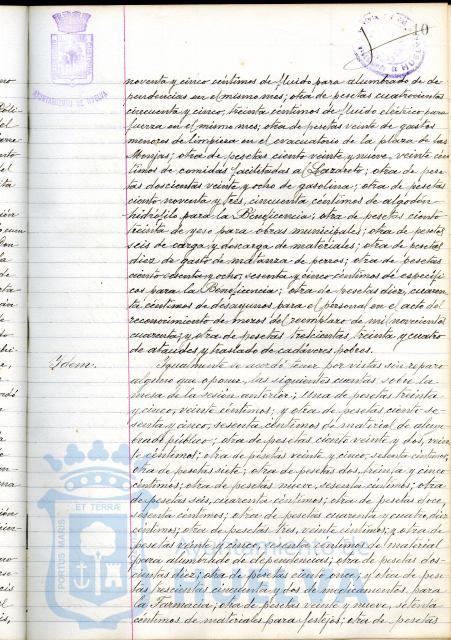 10
AYUNTAMIENTO DE HUELVA
noventa y cinco céntimos de fluido para alumbrado de de
pendencias en el mismo mes; otra de pesetas cuatrocientas
cincuenta y cinco, treinta céntimos de fluido eléctrico para
fuerza en el mismo mes; otra de pesetas veinte de gastos
menores de limpieza en el evacuatorio de la plaza de las
Monjas; otra de pesetas ciento veinte y nueve, veinte cén
timos de comidas facilitadas al Lazareto; otra de pese
tas doscientas veinte y ocho de gasolina; otra de pesetas
ciento noventa y tres, cincuenta céntimos de algodón
hidrófilo para la Beneficencia; otra de pesetas ciento
treinta de yeso para obras municipales; otra de pesetas
seis de carga y descarga de materiales; otra de pesetas
diez de gasto de matanza de perros; otra de pesetas
ciento setenta y ocho, sesenta y cinco céntimos de específi
cos para la Beneficencia; otra de pesetas diez, cuaren
ta céntimos de desayunos para el personal en el acto del
reconocimiento de mozos del reemplazo de mil novecientos
cuarenta; y otra de pesetas trescientas treinta y cuatro
de ataudes y traslado de cadáveres pobres.
Idem. Igualmente se acordó tener por vistas sin reparo
alguno que oponer, las siguientes cuentas, sobre la
mesa de la sesión anterior: Una de pesetas treinta
y cinco, veinte céntimos; y otra de pesetas ciento se
senta y cinco, sesenta céntimos de material de alum
brado público; otra de pesetas ciento veinte y dos, vein
te céntimos; otra de pesetas veinte y cinco, setenta céntimos;
otra de pesetas siete; otra de pesetas dos, treinta y cinco
céntimos; otra de pesetas nueve, sesenta céntimos; otra
de pesetas seis, cuarenta céntimos; otra de pesetas doce,
sesenta céntimos; otra de pesetas cuarenta y cuatro, diez
céntimos; otra de pesetas tres, veinte céntimos; y otra de
pesetas veinte y cinco, céntimos de material
para alumbrado de dependencias; otra de pesetas dos
cientas diez; otra de pesetas ciento once; y otra de pese
tas trescientas cincuenta y dos de medicamentos para
la Farmacia; otra de pesetas veinte y nueve, setenta
céntimos de materiales para festejos; otra de pesetas
PORTUS MARIS ET TERRÆ
Ayuntamiento de